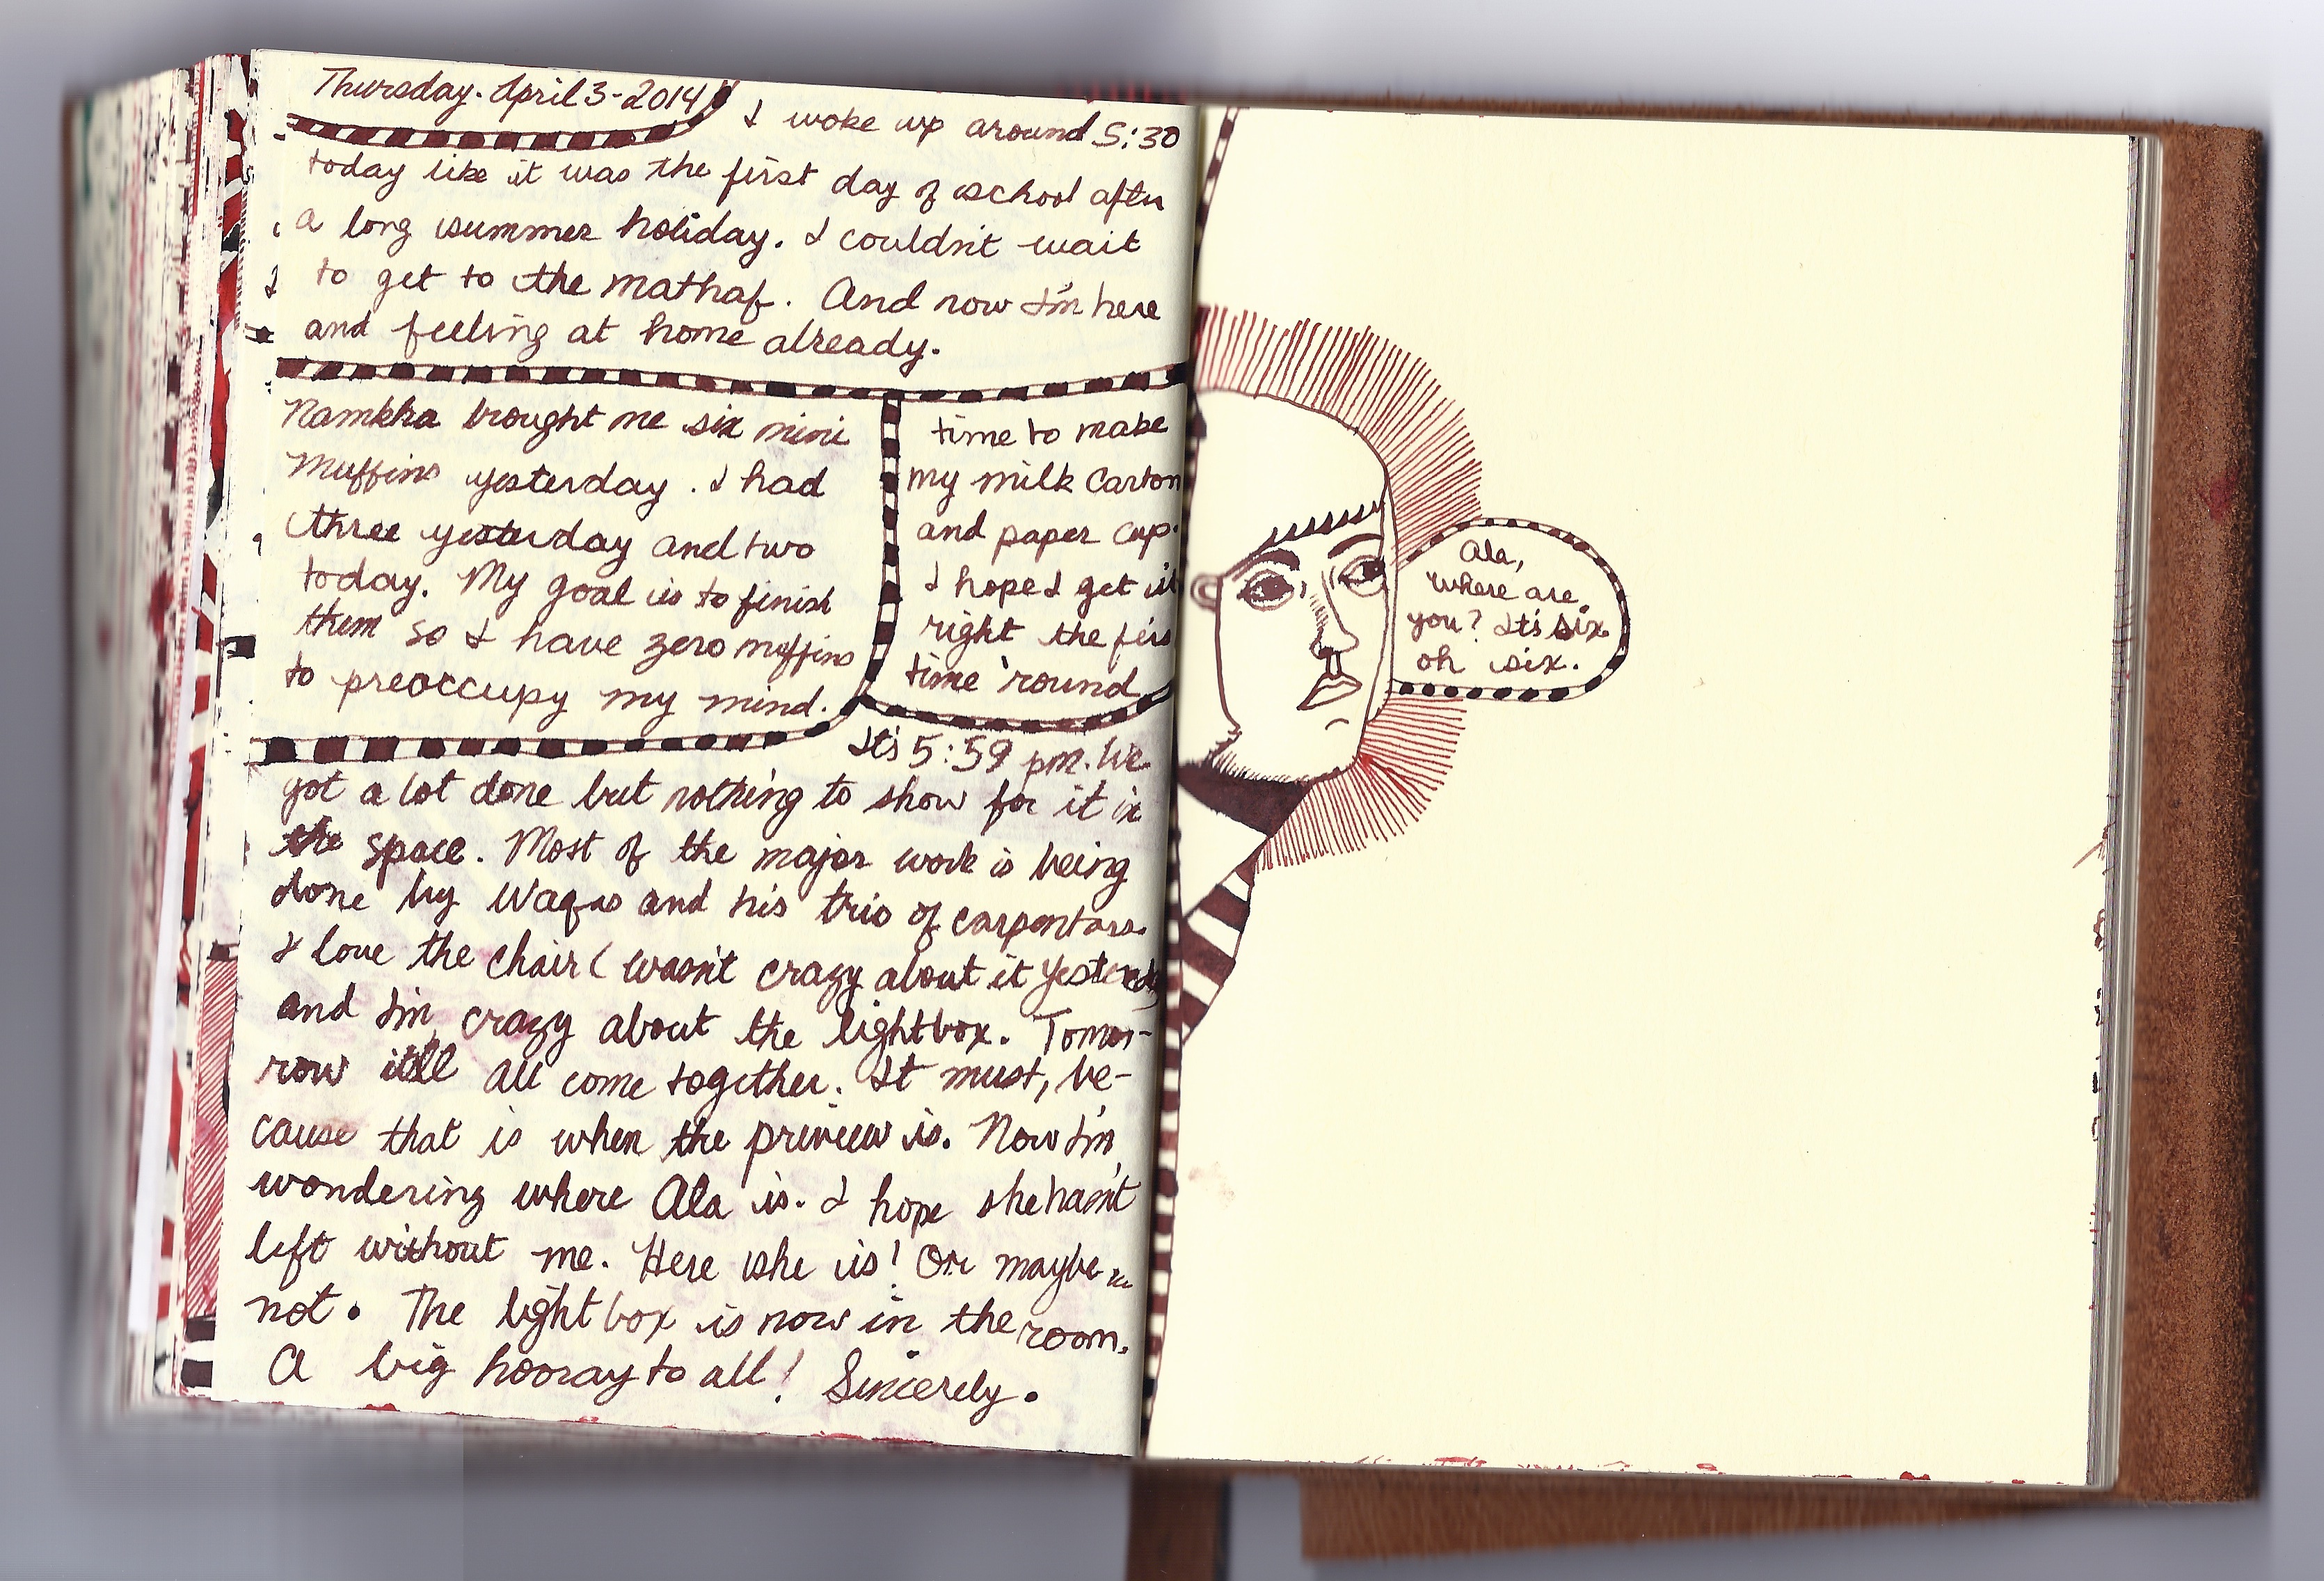 Thursday. April 3-2014
I woke up around 5:30
today like it was the first day of school after
a long summer holiday. I couldn't wait
to get to the mathaf. And now I'm here
and feeling at home already.
Namkha brought me six mini
muffins yesterday. I had
three yesterday and two
today. My goal is to finish
them so I have zero muffins
to preoccupy my mind.
time to make
my milk carton
and paper cup.
I hope I get it
right the firs
time 'round
It's 5:59 pm. We
got a lot done but nothing to show for it in
the space. Most of the major work is being
done by Waqas and his trio of carpentars.
I love the chair (wasn't crazy about it yesterday
and I'm crazy about the lightbox. Tomor-
row it'll all come together. It must, be-
cause that is when the preview is. Now I'm
wondering where Ala is. I hope she hasn't
left without me. Here she is! Or maybe
not. The lightbox is now in the room.
A big hooray to all! Sincerely.
Ala,
where are
you? It's six
oh six.